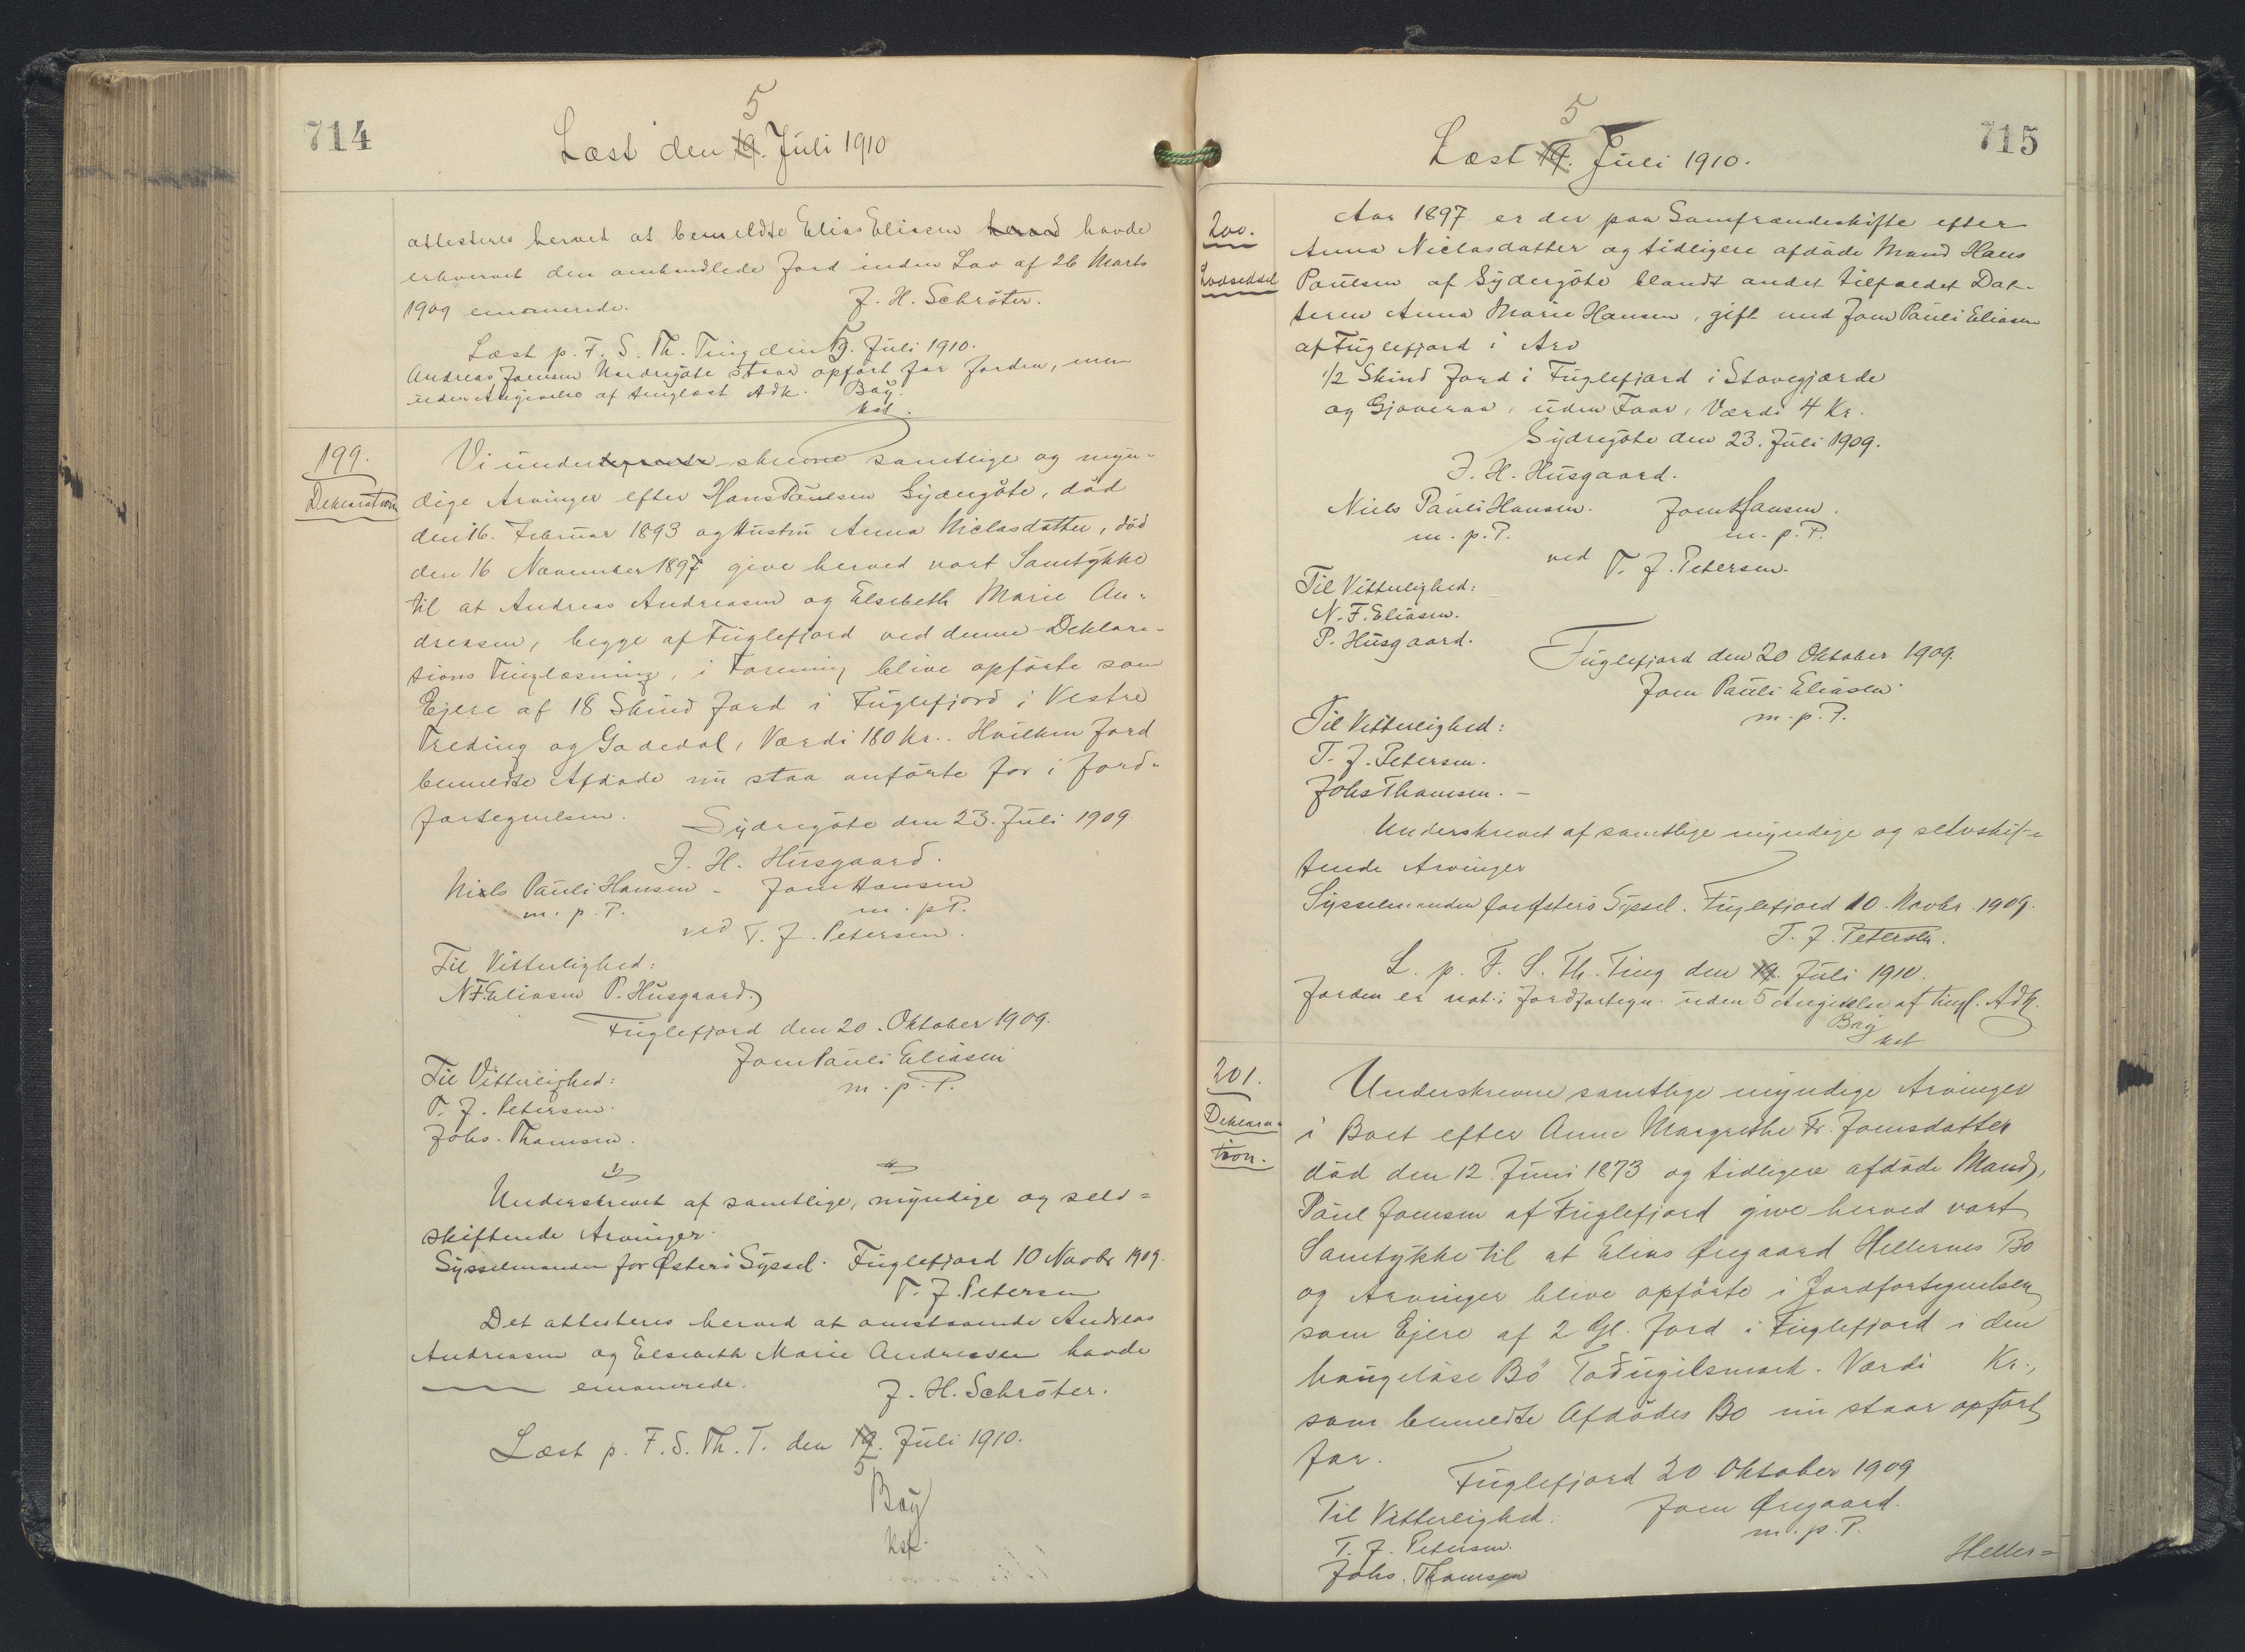 714
5
Læst den 19. Juli 1910
attesteres herved at bemeldte Elias Eliasen herved havde
erhvervet den omhandlede Jord inden Lov af 26 Marts
1909 emanerede. J. H. Schröter.
Læst p. F. S. Th. Ting den 19. Juli 1910.
Andreas Joensen Nordregöte staar opfört for Jorden, men
uden Angivelse af tinglæst Adk. Bay
kst.
199.
Deklaration
Vi under skrevne samtlige og myn-
dige Arvinger efter Hans Paulsen Sydergöte, död
den 16. Februar 1893 og Hustru Anna Niclasdatter, död
den 16 November 1897 give herved vort Samtykke
til at Andreas Andreasen og Elsebeth Marie An-
dreasen, begge af Fuglefjord ved denne Deklara-
tions Tinglæsning, i Forening blive opförte som
Ejere af 18 Skind Jord i Fuglefjord i Vestre
Treding og Gadedal, Værdi 180 Kr.. Hvilken Jord
bemeldte Afdöde nu staa anförte for i Jord-
fortegnelsen.
Sydregöte den 23. Juli 1909
J. H. Husgaard.
Niels Pauli Hansen - Joen Hansen
m. p. P. m. p P.
ved T. J. Petersen.
Til Vitterlighed:
N F. Eliasen P. Husgaard.
Fuglefjord den 20. Oktober 1909.
Joen Pauli Eliasen
m. p. P.
Til Vitterlighed:
T. J. Petersen.
Johs. Thomsen.
Underskrevet af samtlige, myndige og selv=
skiftende Arvinger.
Sysselmanden for Østerö Syssel. Fuglefjord 10 Novbr 1909.
T. J. Petersen
Det attesteres herved at omstaaende Andreas
Andreasen og Elsebeth Marie Andreasen havde
——— emanerede.
J. H. Schröter.
Læst p. F. S. Th. T. den 19. Juli 1910.
5
Bay
kst.
715
5
Læst 19. Juli 1910.
200.
Lodseddel
Aar 1897 er der paa Samfrændeskifte efter
Anna Niclasdatter og tidligere afdöde Mand Hans
Paulsen af Sydergöte blandt andet tilfaldet Dat-
teren Anna Marie Hansen, gift med Joen Pauli Eliasen
af Fuglefjord i Arv
1/2 Skind Jord i Fuglefjord i Stovegjærde
og Gjoveraa, uden Faar, Værdi 4 Kr.
Sydregöte den 23. Juli 1909.
J. H. Husgaard.
Niels Pauli Hansen. Joen Hansen.
m. p. P. m. p. P.
ved T. J. Petersen.
Til Vitterlighed:
N. F. Eliasen.
P. Husgaard.
Fuglefjord den 20 Oktober 1909.
Joen Pauli Eliasen.
m. p. P.
Til Vitterlighed:
T. J. Petersen.
Johs Thomsen. -
Underskrevet af samtlige myndige og selvskif-
tende Arvinger
Sysselmanden for Østerö Syssel. Fuglefjord 10. Novbr. 1909.
T. J. Petersen.
L. p. F. S. Th. Ting den 19. Juli 1910.
5
Jorden er not. i Jordfortegn. uden Angivelse af tingl. Adk.
Bay
kst
201.
Deklara-
tion.
Underskrevne samtlige myndige Arvinger
i Boet efter Anne Margrethe Fr. Joensdatter
död den 12. Juni 1873 og tidligere afdöde Mand,
Poul Joensen af Fuglefjord give herved vort
Samtykke til at Elias Øregaard Hellernes Bo
og Arvinger blive opförte i Jordfortegnelsen
som Ejere af 2 Gl. Jord i Fuglefjord i den
haugelöse Bö Toðugilsmark. Værdi Kr.,
som bemeldte Afdödes Bo nu staar opfört
for.
Fuglefjord 20 Oktober 1909
Til Vitterlighed: Joen Øregaard.
m. p. P.
T. J. Petersen.
Johs. Thomsen
Heller=